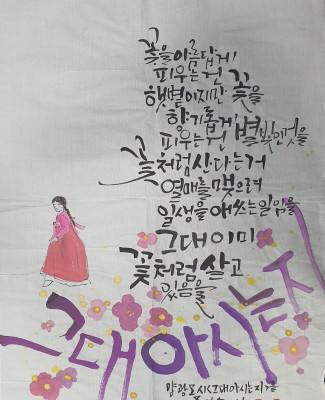 꽃을 아름답게
피우는 건
햇볕이지만 꽃을
향기롭게
피우는 건 별빛인것을
꽃처럼 산다는거
열매를 맺으려
일생을 애쓰는 일임을
그대 이미
꽃처럼 살고
있음을
그대 아시는지
양광모 시 그대 아시는지를